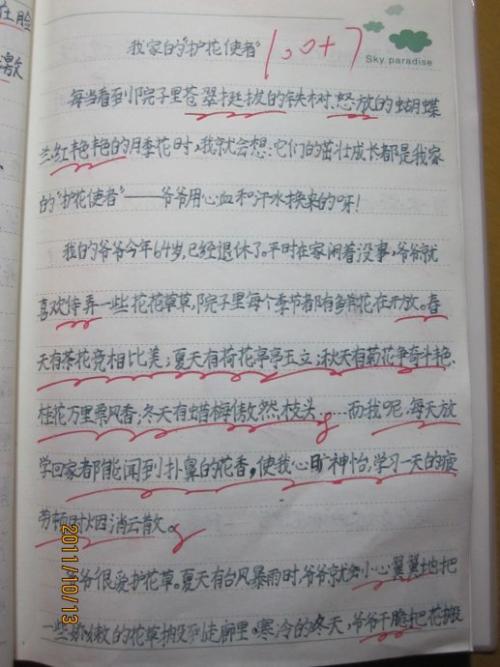 在脸
激
我家的“护花使者”
100+7
Sky paradise
每当看到院子里苍翠挺拔的铁树、怒放的蝴蝶
兰、红艳艳的月季花时，我就会想：它们的茁壮成长都是我家
的“护花使者”——爷爷用心血和汗水换来的呀！
我的爷爷今年64岁，已经退休了。平时在家闲着没事，爷爷就
喜欢侍弄一些花花草草，院子里每个季节都有鲜花在开放。春
天有茶花竞相比美；夏天有荷花亭亭玉立；秋天有菊花争奇斗艳、
桂花万里飘香；冬天有蜡梅傲然枝头……而我呢，每天放
学回家都能闻到扑鼻的花香，使我心旷神怡，学习一天的疲
劳顿时烟消云散。
爷很爱护花草。夏天有台风暴雨时，爷爷就会小心翼翼地把
一些娇嫩的花草搬到走廊里。寒冷的冬天，爷爷干脆把花搬
2011/10/13